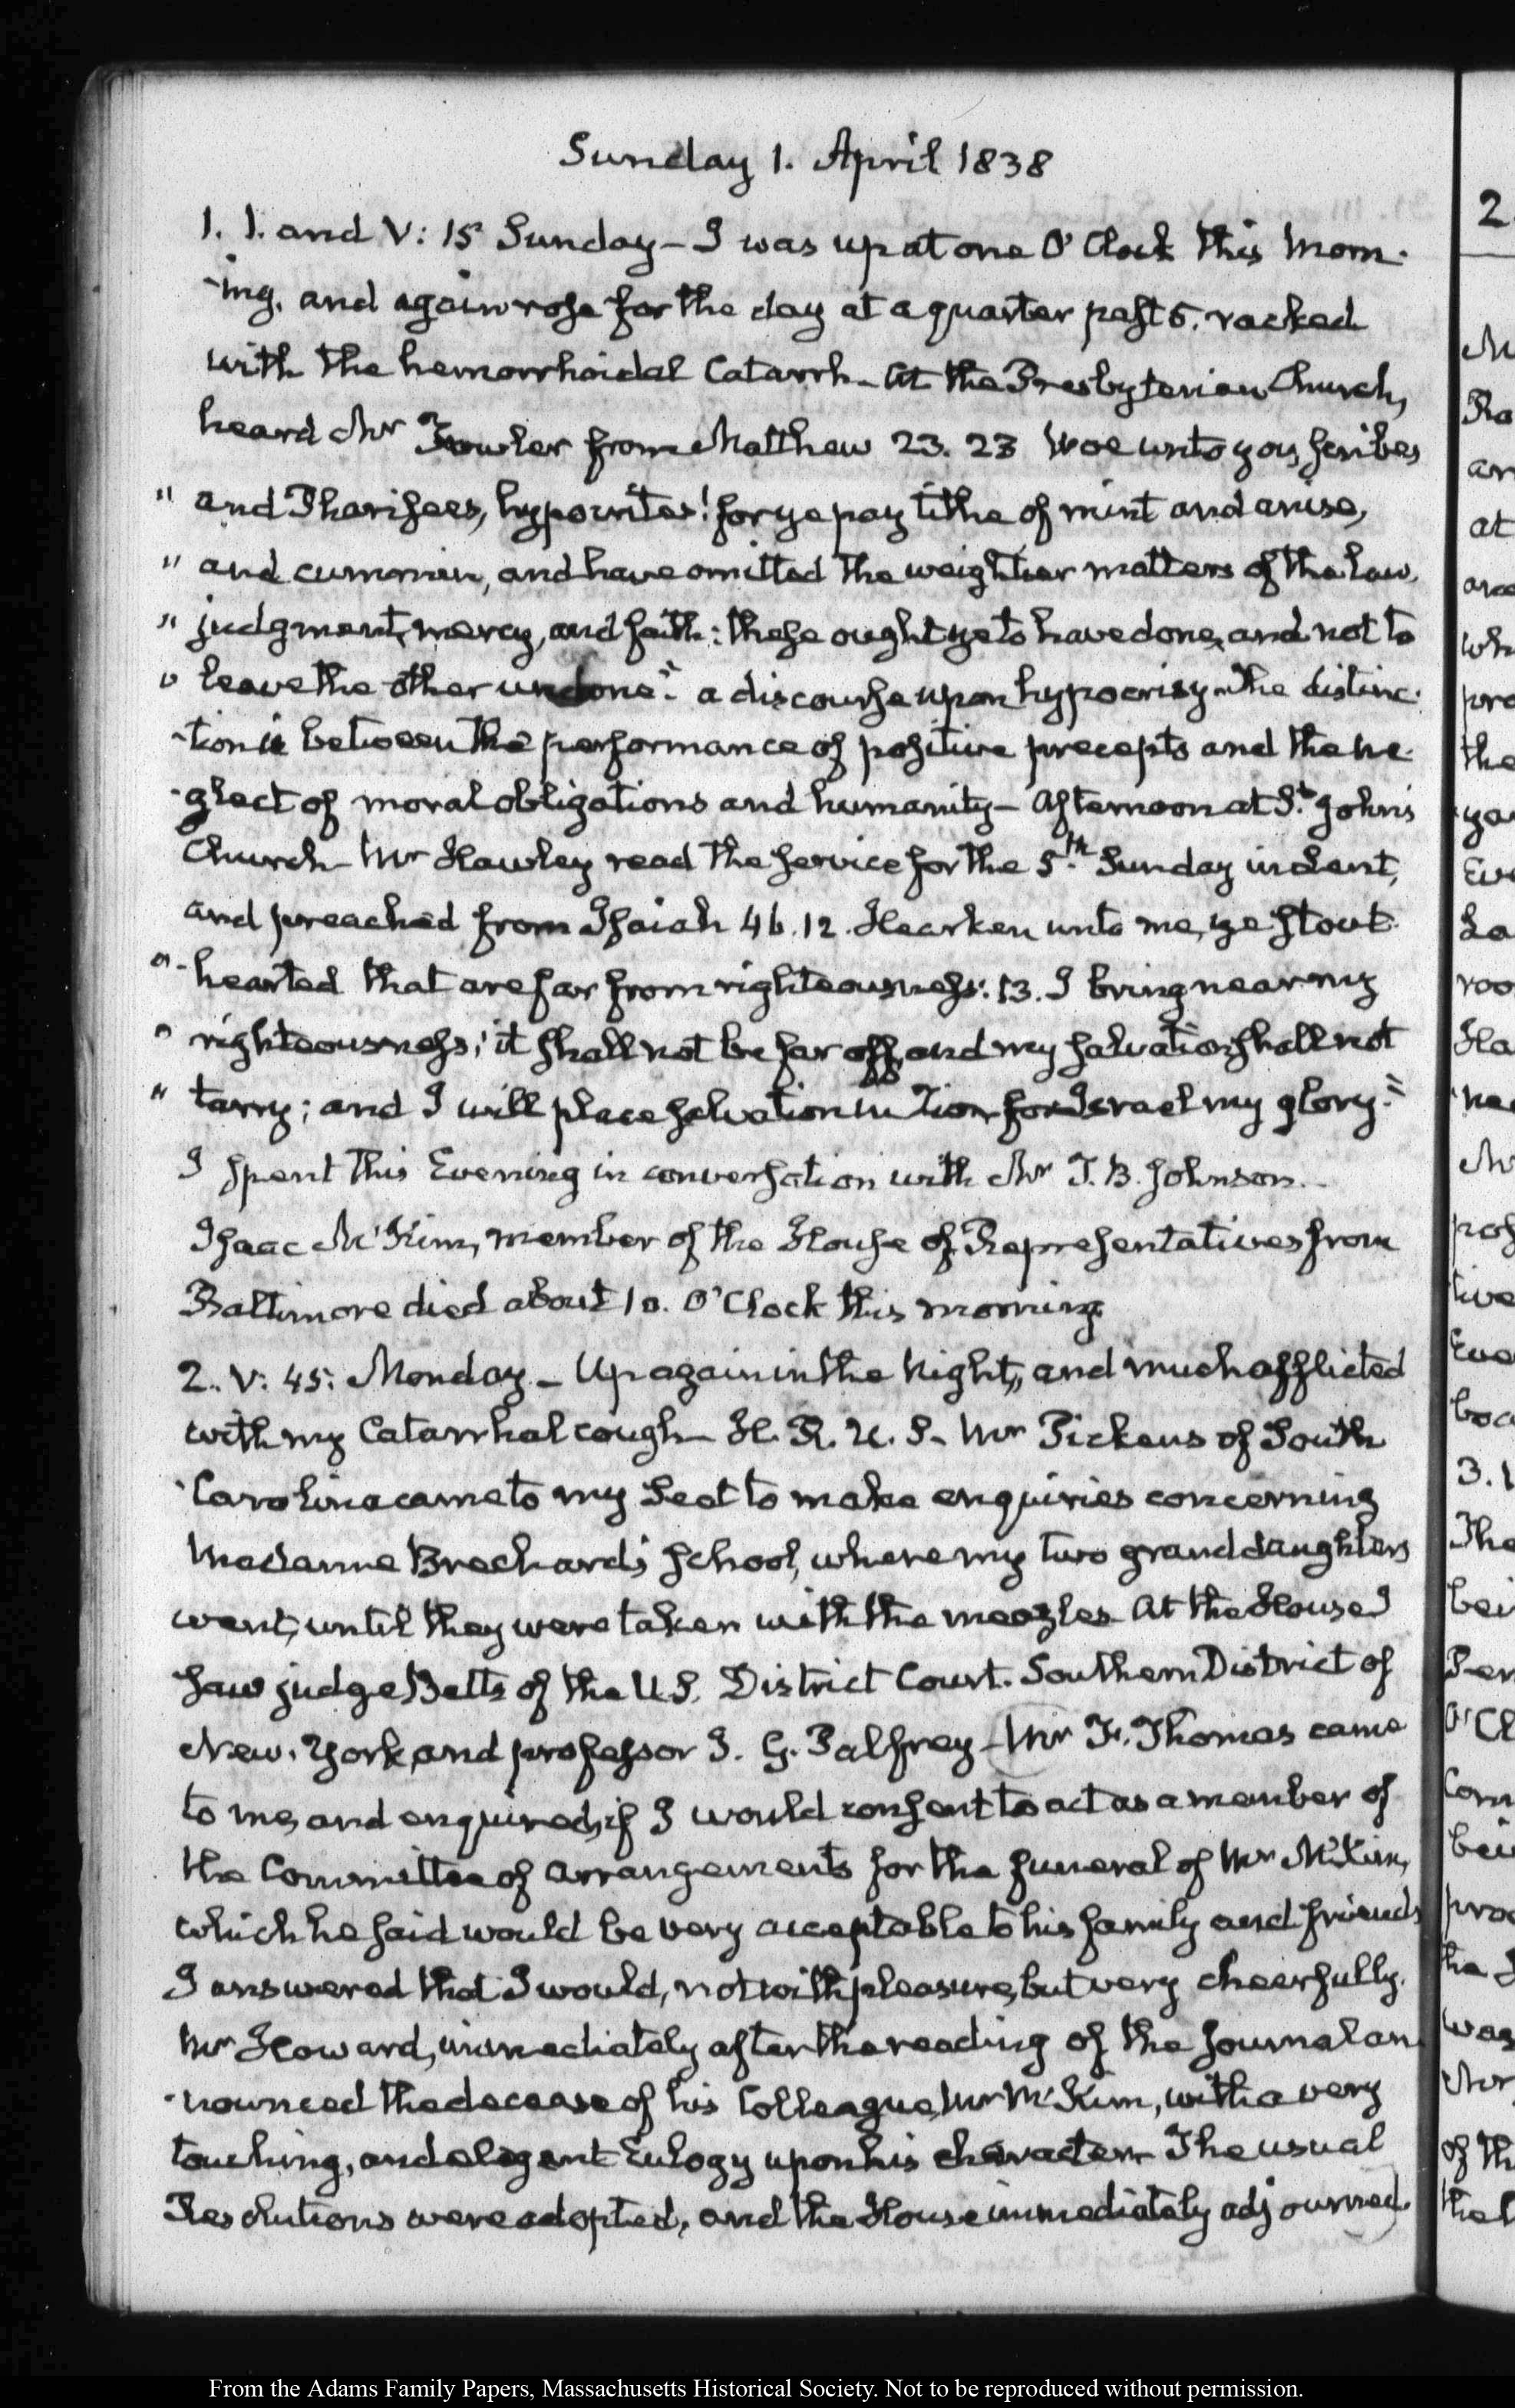 Sunday 1. April 1838
1. 1. and V: 15 Sunday — I was up at one O'Clock this Morn-
-ing, and again rose for the day at a quarter past 5. racked
with the hemorrhoidal Catarrh — At the Presbyterian Church,
heard Mr Fowler from Matthew 23. 23 Woe unto you, scribes
" and Pharisees, hypocrites! for ye pay tithe of mint and anise,
" and cummin, and have omitted the weightier matters of the law,
" judgment, mercy, and faith: these ought ye to have done, and not to
" leave the other undone." a discourse upon hypocrisy — The distinc-
-tion is between the performance of positive precepts and the ne-
-glect of moral obligations and humanity — Afternoon at St. John's
Church — Mr Hawley read the service for the 5th. Sunday in Lent,
and preached from Isaiah 46. 12. Hearken unto me, ye stout-
"-hearted that are far from righteousness: 13. I bring near my
" righteousness; it shall not be far off, and my salvation shall not
" tarry; and I will place salvation in Zion for Israel my glory."
I spent this Evening in conversation with Mr T. B. Johnson. —
Isaac McKim, member of the House of Representatives from
Baltimore died about 10. O'Clock this morning
2. V: 45: Monday — Up again in the Night, and much afflicted
with my Catarrhal cough — H. R. U. S. — Mr Pickens of South
-Carolina came to my Seat to make enquiries concerning
Madame Brechard's School, where my two granddaughters
went, until they were taken with the meazles — At the House I
saw judge Betts of the U.S. District Court. Southern District of
New-York, and professor J. G. Palfrey — Mr F. Thomas came
to me, and enquired, if I would consent to act as a member of
the Committee of Arrangements for the funeral of Mr McKim,
which he said would be very acceptable to his family and friends
I answered that I would, not with pleasure, but very cheerfully.
Mr Howard, immediately after the reading of the Journal an-
-nounced the decease of his Colleague, Mr McKim, with a very
touching, and elegant Eulogy upon his character — The usual
Resolutions were adopted, and the House immediately adjourned.
From the Adams Family Papers, Massachusetts Historical Society. Not to be reproduced without permission.